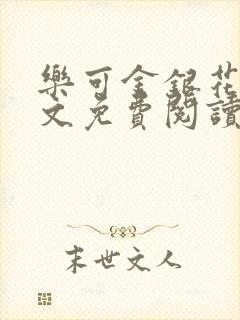 樂可金銀花
文免費閱讀
末世文人